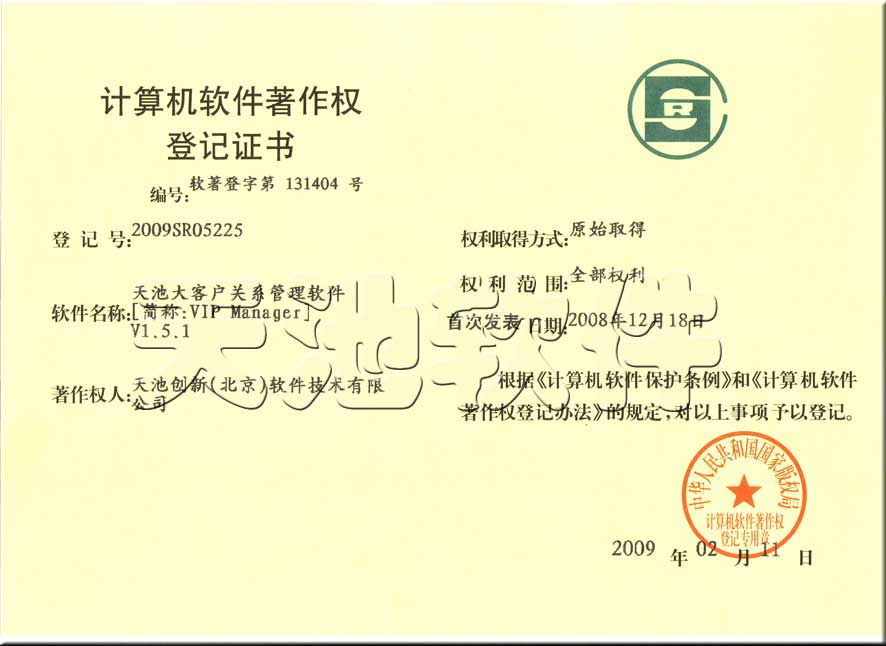 计算机软件著作权
登记证书
编号：软著登字第 131404 号
登 记 号：2009SR05225
软件名称：天池大客户关系管理软件
[简称：VIP Manager]
V1.5.1
著作权人：天池创新(北京)软件技术有限
公司
SR
权利取得方式：原始取得
权 利 范 围：全部权利
首次发表日期：2008年12月18日
根据《计算机软件保护条例》和《计算机软件
著作权登记办法》的规定，对以上事项予以登记。
中华人民共和国国家版权局
计算机软件著作权
登记专用章
2009 年 02 月 11 日
天池软件